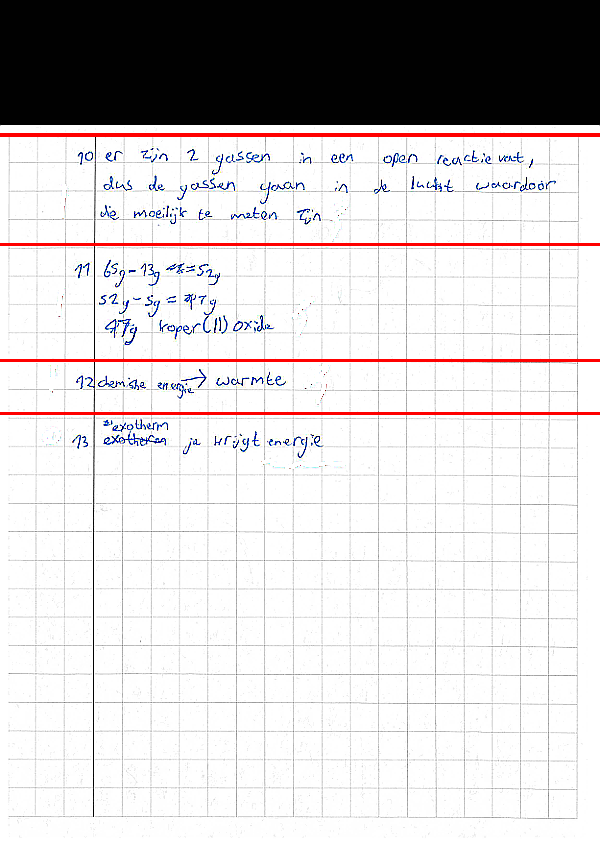 10 er zijn 2 gassen in een open reactievat,
dus de gassen gaan in de lucht waardoor
die moeilijk te meten zijn
11 65g - 13g = 52g
52g - 5g = 47g
47g koper(II)oxide
12 chemishe energie → warmte
exotherm
13 ja krijgt energie